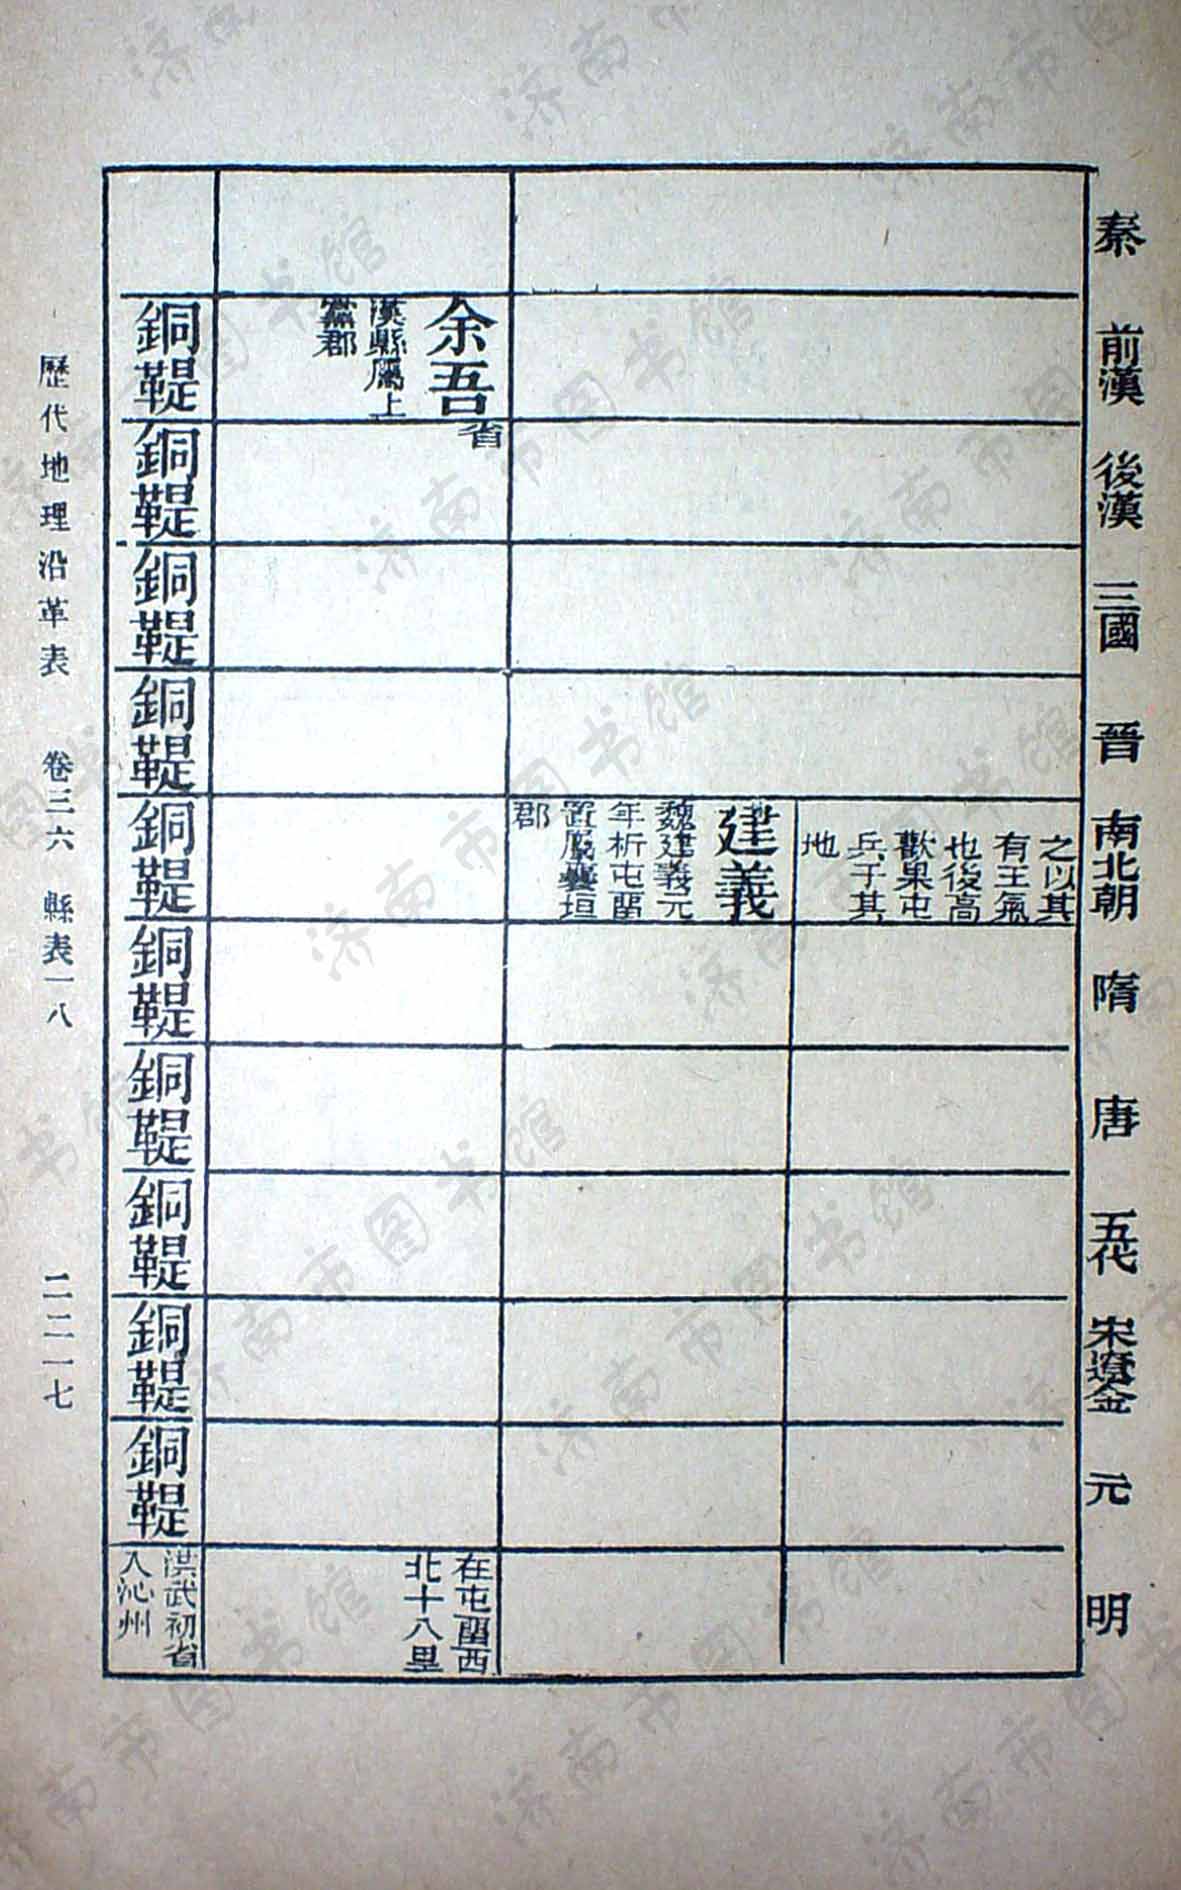 秦
前漢
後漢
三國
晉
南北朝
隋
唐
五代
宋遼金
元
明
之以其
有王氣
也後高
歡果屯
兵于其
地
建義
魏建義元
年析屯留
置屬襄垣
郡
余吾
漢縣屬上
黨郡
省
在屯留西
北十八里
銅鞮
銅鞮
銅鞮
銅鞮
銅鞮
銅鞮
銅鞮
銅鞮
銅鞮
銅鞮
洪武初省
入沁州
歷代地理沿革表 卷三六 縣表一八 二二一七
济南市图书馆